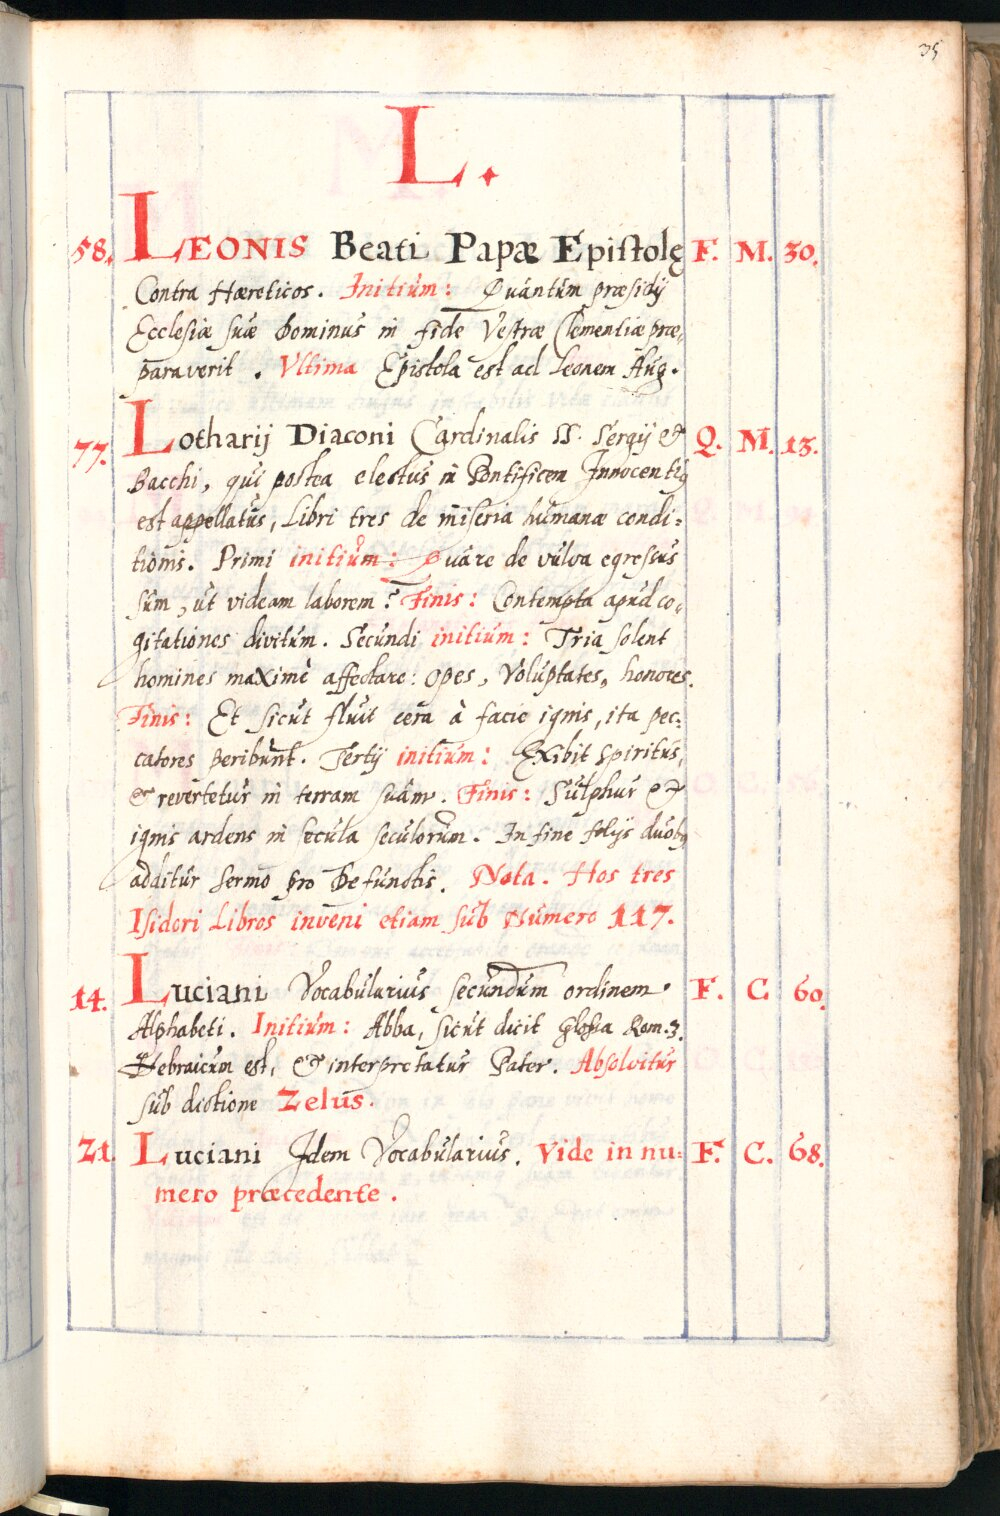 35
L.
58. LEONIS Beati Papæ Epistolę F. M. 30.
Contra Hæreticos. Initium: Quantum præsidij
Ecclesiæ suæ Dominus in fide Vestræ Clementiæ præ„
paraverit. Vltima Epistola est ad Leonem Aug.
77. Lotharij Diaconi Cardinalis SS. Sergij & Q. M. 13.
Bacchi, qui postea electus in Pontificem Innocentiꝰ
est appellatus, Libri tres de miseria humanæ condi:
tionis. Primi initium: Quare de vulva egressus
sum, ut videam laborem? Finis: Contempta apud co„
gitationes divitum. Secundi initium: Tria solent
homines maximè affectare: opes, Voluptates, honores.
Finis: Et sicut fluit cera à facie ignis, ita pec:
catores peribunt. Tertij initium: Exibit spiritus,
& revertetur in terram suam. Finis: Sulphur &
ignis ardens in secula seculorum. In fine folijs duobꝰ
additur Sermo pro Defunctis. Nota. Hos tres
Isidori Libros inveni etiam sub Numero 117.
14. Luciani Vocabularius secundum ordinem F. C. 60.
Alphabeti. Initium: Abba, sicut dicit glossa Rom.3.
Hebraicum est, & interpretatur Pater. Absolvitur
sub dictione Zelus.
21. Luciani Idem Vocabularius. Vide in nu: F. C. 68.
mero præcedente.